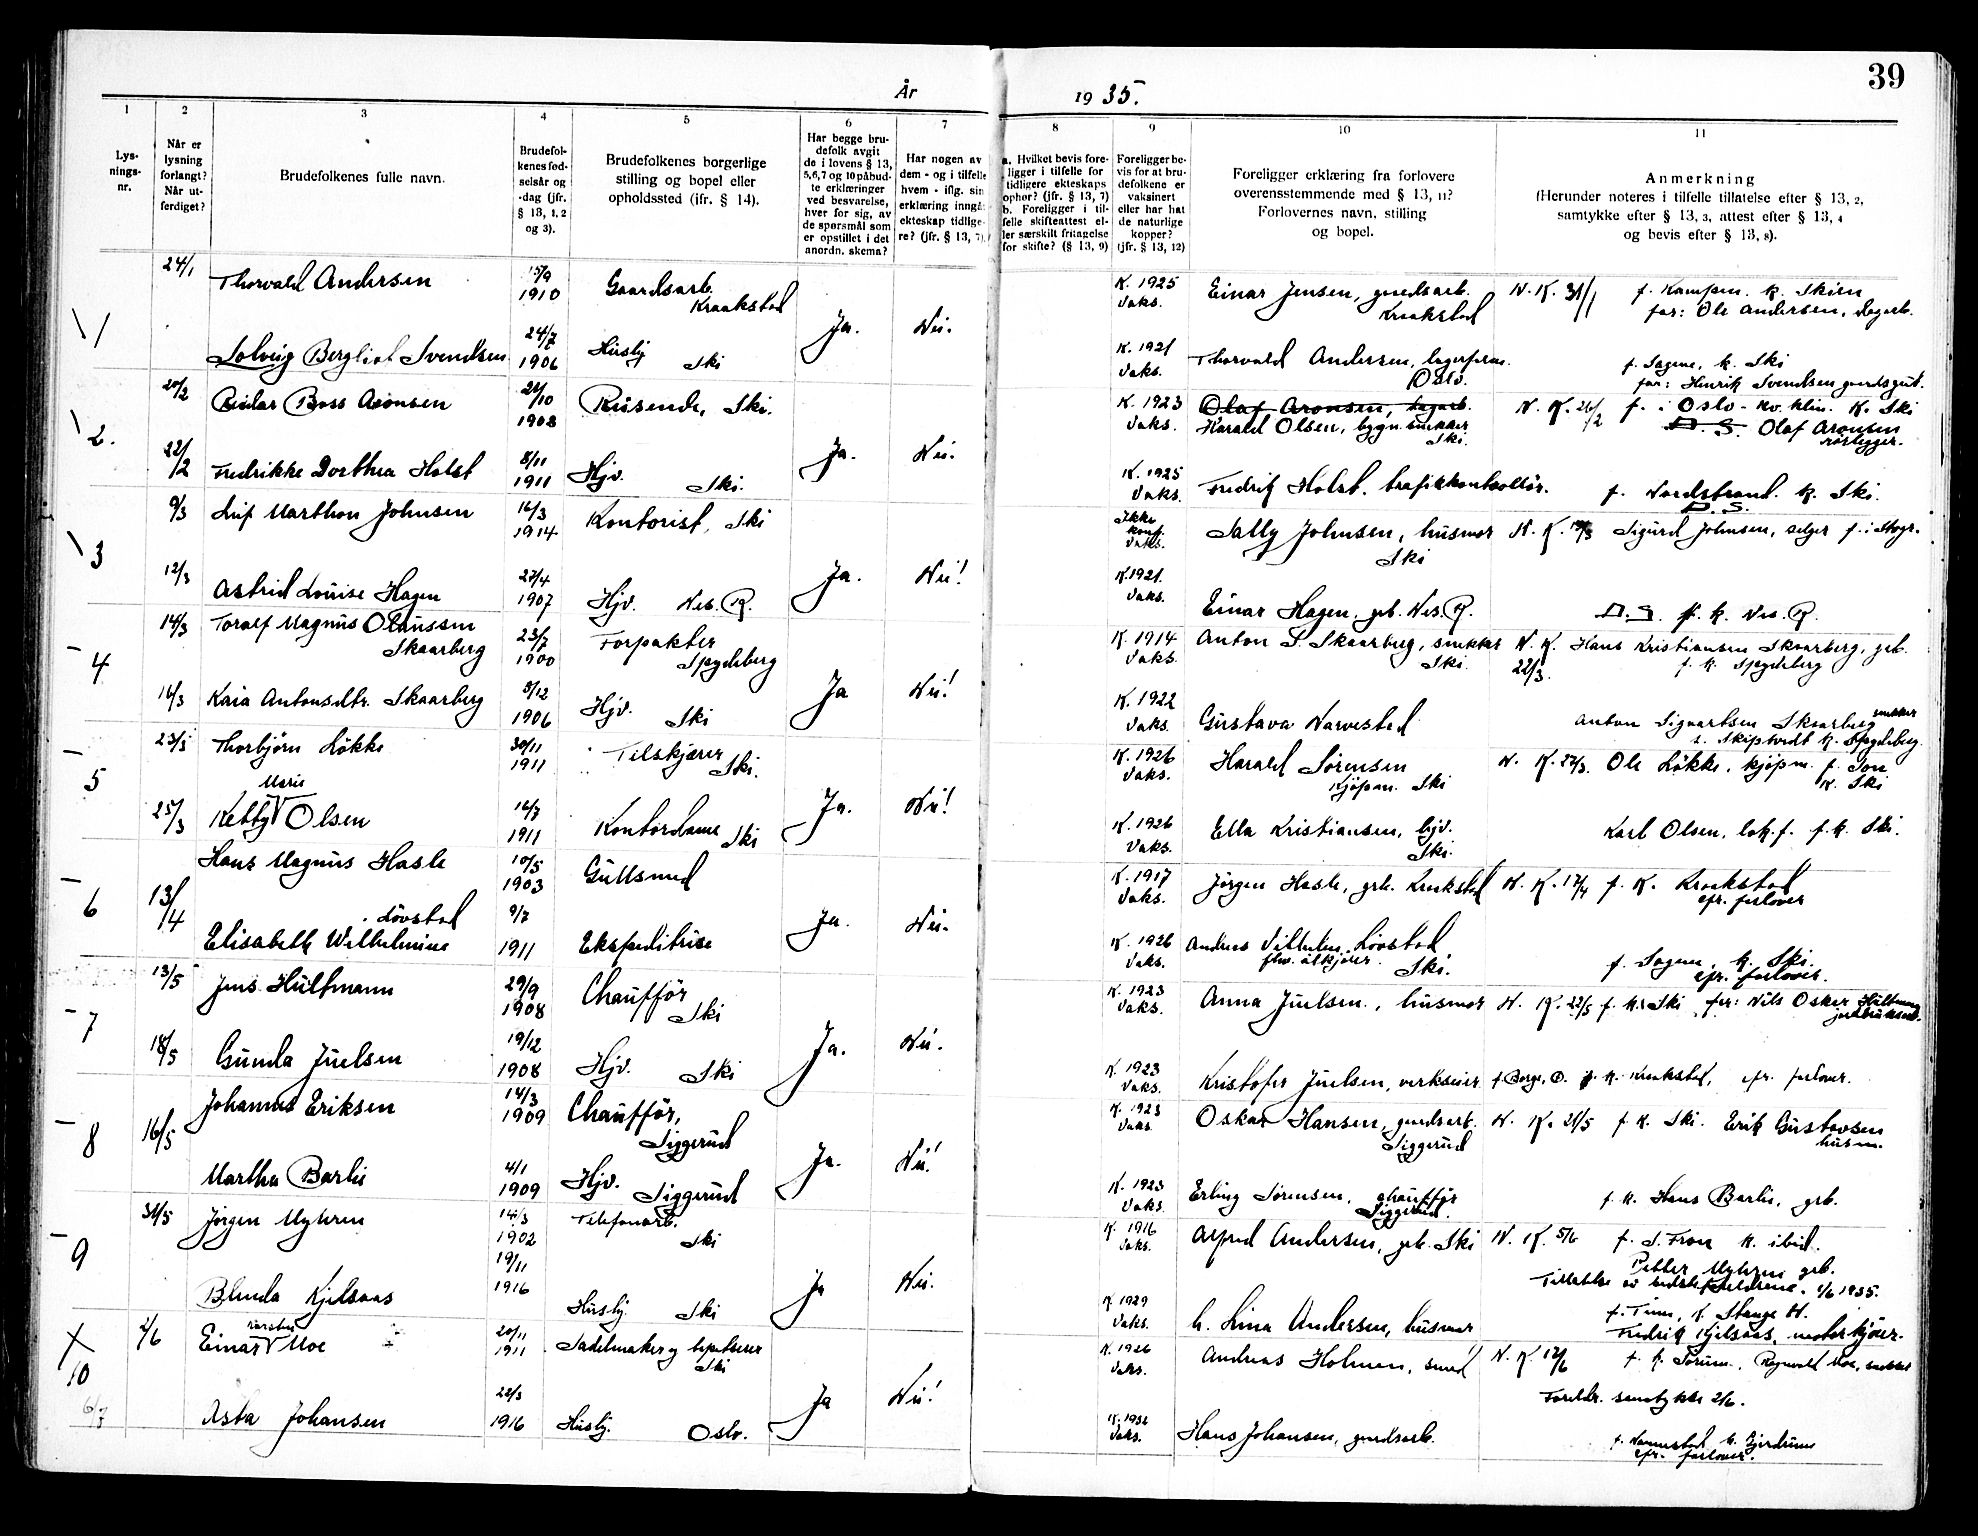 39
År 1935.
1 2 3 4 5 6 7 8 9 10 11
Lys-
nings-
nr.
Når er
lysning
forlangt?
Når ut-
ferdiget?
Brudefolkenes fulle navn.
Brudefol-
kenes fød-
selsår og
-dag (jfr.
§ 13, 1, 2
og 3).
Brudefolkenes borgerlige
stilling og bopel eller
opholdssted (jfr. § 14).
Har begge bru-
defolk avgit
de i lovens § 13,
5,6,7 og 10 påbud-
te erklæringer
ved besvarelse,
hver for sig, av
de spørsmål som
er opstillet i det
anordn. skema?
Har nogen av
dem - og i tilfelle
hvem - iflg. sin
erklæring inngåt
ekteskap tidlige-
re? (jfr. § 13, 7).
a. Hvilket bevis fore-
ligger i tilfelle for
tidligere ekteskaps
ophør? (jfr. § 13, 7)
b. Foreligger i til-
felle skifteattest el-
ler særskilt fritagelse
for skifte? (§ 13, 9)
Foreligger be-
vis for at bru-
defolkene er
vaksinert
eller har hat
de naturlige
kopper?
(jfr. § 13, 12)
Foreligger erklæring fra forlovere
overensstemmende med § 13, 11?
Forlovernes navn, stilling
og bopel.
Anmerkning
(Herunder noteres i tilfelle tillatelse efter § 13, 2,
samtykke efter § 13, 3, attest efter § 13, 4
og bevis efter § 13, 8).
1
24/1 Thorvald Andersen 15/9 1910 Gaardsarb. Kraakstad K. 1925 Vaks. Einar Jensen, gaardsarb. Kraakstad N. K. 31/1 f. Kampen. k. Skien
far: Ole Andersen, dagarb.
Solveig Bergliot Svendsen 24/7 1906 Husby Ski Ja. Nei. K. 1921 Vaks. Thorvald Andersen, lagerform. Oslo. f. Sagene, k. Ski
far: Henrik Svendsen gaardsgut.
2.
20/2 Reidar Boss Aronsen 21/10 1908 Reisende, Ski. K. 1923 Vaks. Olaf Aronsen, dagarb.
Harald Olsen, bygn. snekker Ski. N. K. 26/2 f. i Oslo - kv. klin. K. Ski
D. S. Olaf Aronsen rørlegger.
22/2 Fredrikke Dorthea Holst 8/11 1911 Hjv. Ski. Ja. Nei. K. 1925 Vaks. Fredrik Holst. trafikkontrollör. f. Nordstrand. k. Ski.
D. S.
3
9/3 Leif Marthon Johnsen 16/3 1914 Kontorist, Ski Ikke konf. Vaks. Sally Johnsen, husmor Ski N. K. 19/3 Sigurd Johnsen, selger f. i
12/3 Astrid Louise Hagen 27/4 1907 Hjv. Nes. R. Ja. Nei! K. 1921. Vaks. Einar Hagen, grb. Nes. R. D. S. f. k. Nes. R.
4
14/3 Toralf Magnus Olaussen Skaarberg 23/7 1900 Forpakter Spydeberg K. 1914 Vaks. Anton S. Skaarberg, snekker Ski. N. K. 22/3. Hans Kristiansen Skaarberg, grb.
f. k. Spydeberg
16/3 Kaia Antonsdtr. Skaarberg 5/12 1906 Hjv. Ski Ja Nei! K. 1922 Vaks. Gustava Narvestad Anton Sigvartsen Skaarberg snekker
f. Skiptvedt k. Spydeberg.
5
23/3 Thorbjørn Løkke 30/11 1911 Tilskjærer Ski. K. 1926 Vaks. Harald Sørensen Kjøpm. Ski N. K. 27/3. Ole Løkke, kjøpm. f. Son
K. Ski
25/3 Ketty Marie Olsen 16/7 1911 Kontordame Ski Ja. Nei! K. 1926 Vaks. Ella Kristiansen, hjv. Ski. Karl Olsen, lok. f. f. k. Ski.
6
13/4 Hans Magnus Hasle 10/5 1903 Gullsmed K. 1917 Vaks. Jørgen Hasle, grb. Kraakstad N. K. 17/4 f. K. Kraakstad
cfr. forlover
Elisabeth Wilhelmine Løvstad 9/7 1911 Ekspeditrise Ja. Nei. K. 1926 Vaks. Andreas Vilhelm Løvstad Ski. f. Sagene, k. Ski.
cfr. forlover.
7
13/5 Jens Hultmann 29/9 1908 Chauffør Ski K. 1923 Vaks. Anna Juelsen., husmor N. K. 22/5 f. k. Ski far: Nils Oskar Hultmann
18/5 Gunda Juelsen 19/12 1908 Hjv. Ski Ja. Nei. K. 1923 Vaks. Kristofer Juelsen, verkseier f. Borge, Ø. k. Kraakstad, cfr. forlover.
8
16/5 Johannes Eriksen 14/3 1909 Chauffør, Siggerud K. 1923 Vaks. Oskar Hansen, gaardsarb. Siggerud N. K. 21/5 f. k. Ski. Erik Gustavsen
husm.
Martha Barlie 4/1 1909 Hjv. Siggerud Ja. Nei! K. 1923 Vaks. Erling Sørensen, chauffør Siggerud. f. k. Hans Barlie, grb.
9
31/5 Jørgen Myhren 14/3 1902 Telefonarb. Ski K. 1916 Vaks. Alfred Andersen, grb. Ski N. K. 5/6 f. S. Fron k. ibid.
Petter Myhren grb.
Blenda Kjelsaas 19/11 1916 Husby. Ski Ja Nei. K. 1929 Vaks. h. Lina Andersen, husmor 1/6 1935.
f. K. Stange H.
Fredrik Kjelsaas, motorkjører.
10
2/6 Einar Karsten Moe 20/11 1911 Sadelmaker og tapetserer Ski K. 1926 Vaks. Andreas Holmen, smed N. K. 12/6 f. k. Sørum., Ragnvald Moe, snekker
Foreldr. samtykke 2/6.
6/7 Asta Johansen 22/3 1916 Husby. Oslo. Ja Nei! K. 1932 Vaks. Hans Johansen, gaardsarb. f. Nannestad k. Gjerdrum
cfr. forlover.